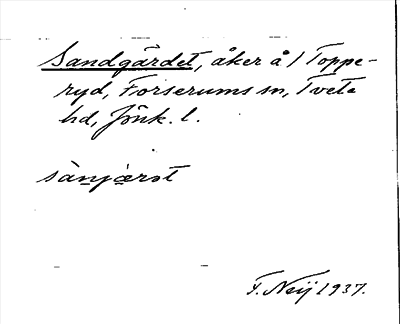 Sandgärdet, åker å 1 Toppe-
ryd, Forserums sn, Tveta
hd, Jönk. l.
sànjæ̀rət
F. Neij 1937.